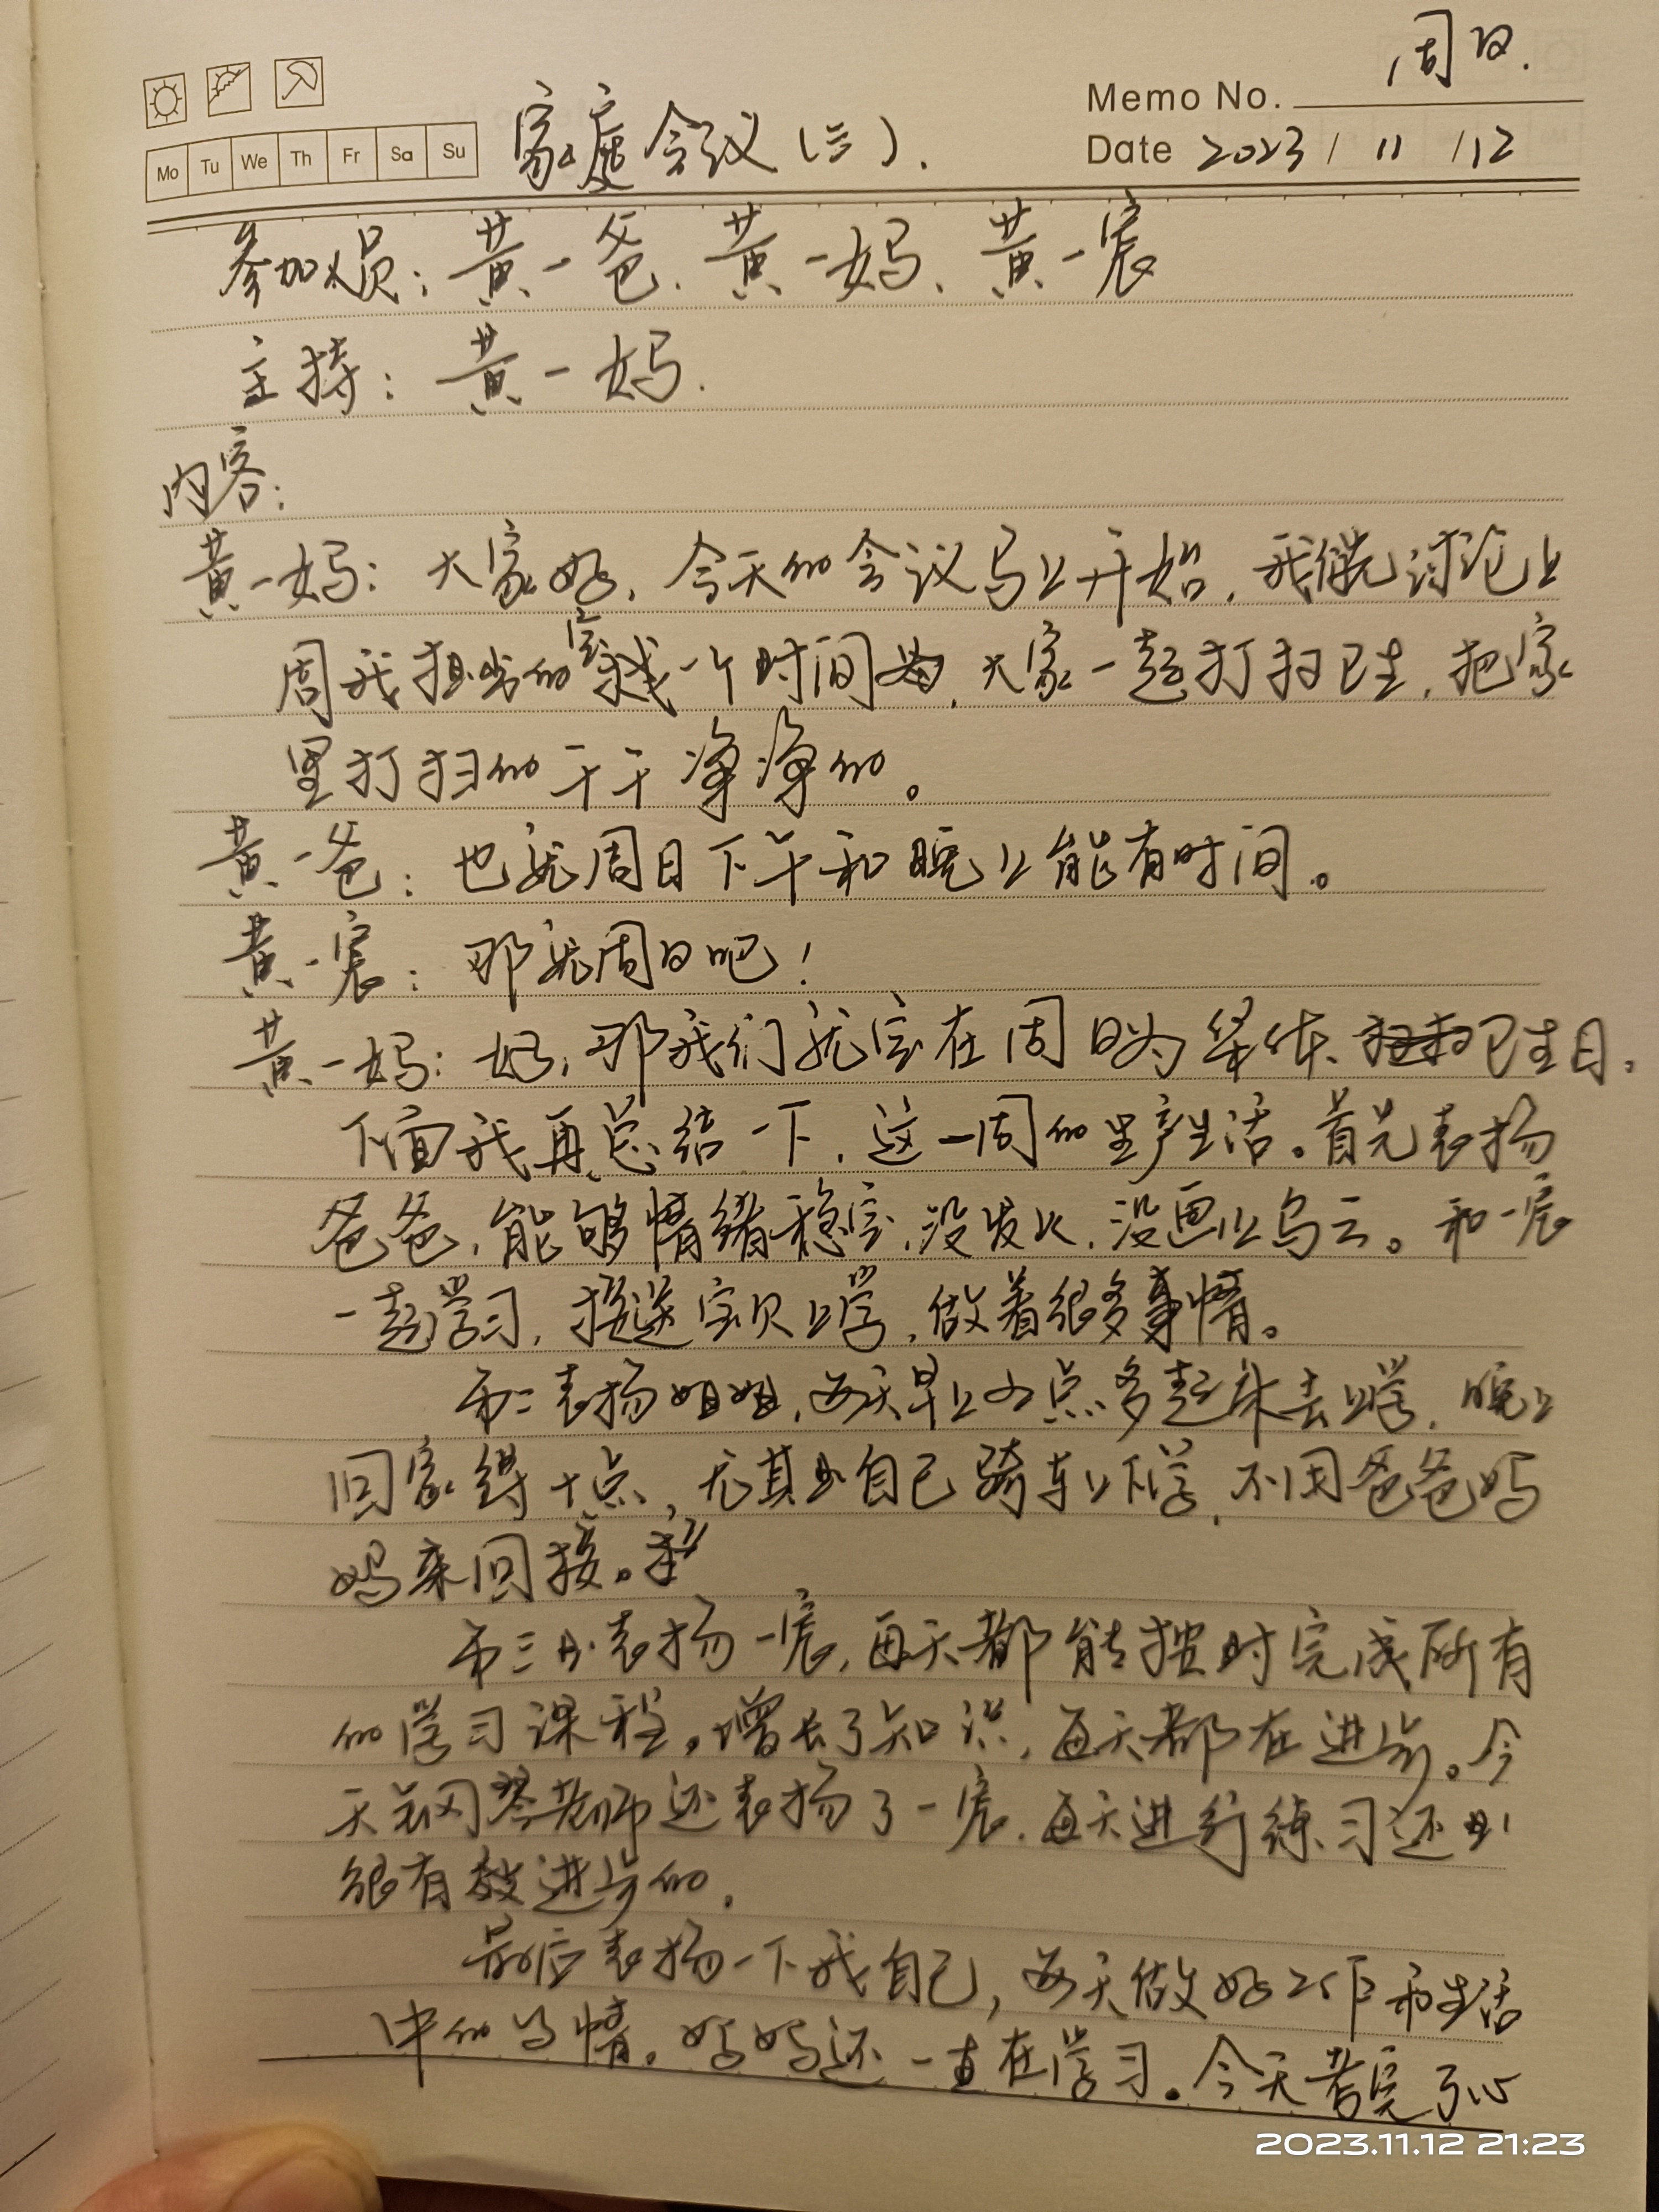 周日.
Memo No.
Mo Tu We Th Fr Sa Su
家庭会议(三).
Date 2023/11/12
参加人员:黄一爸.黄一妈.黄一宸
主持:黄一妈.
内容:
黄一妈:大家好,今天的会议马上开始,我们先讨论上
周我担当的定找一个时间,大家一起打扫卫生,把家
里打扫的干干净净的。
黄一爸:也就周日下午和晚上能有时间。
黄一宸:那就周日吧!
黄一妈:好,那我们就定在周日为集体、卫生日。
下面我再总结一下,这一周的生产生活。首先表扬
爸爸,能够情绪稳定,没发火,没画上乌云。和一宸
一起学习,接送宝贝上学,做着很多事情。
第二表扬姐姐,每天早上六点多起床去上学,晚上
回家得十点,尤其是自己骑车上下学,不用爸爸妈
妈来回接。
第三是表扬一宸,每天都能按时完成所有
的学习课程,增长了知识,每天都在进步。今
天钢琴老师还表扬了一宸.每天进行练习还是
很有效进步的.
最后表扬一下我自己,每天做好工作和生活
中的事情。妈妈还一直在学习。今天考完了心
2023.11.12 21:23